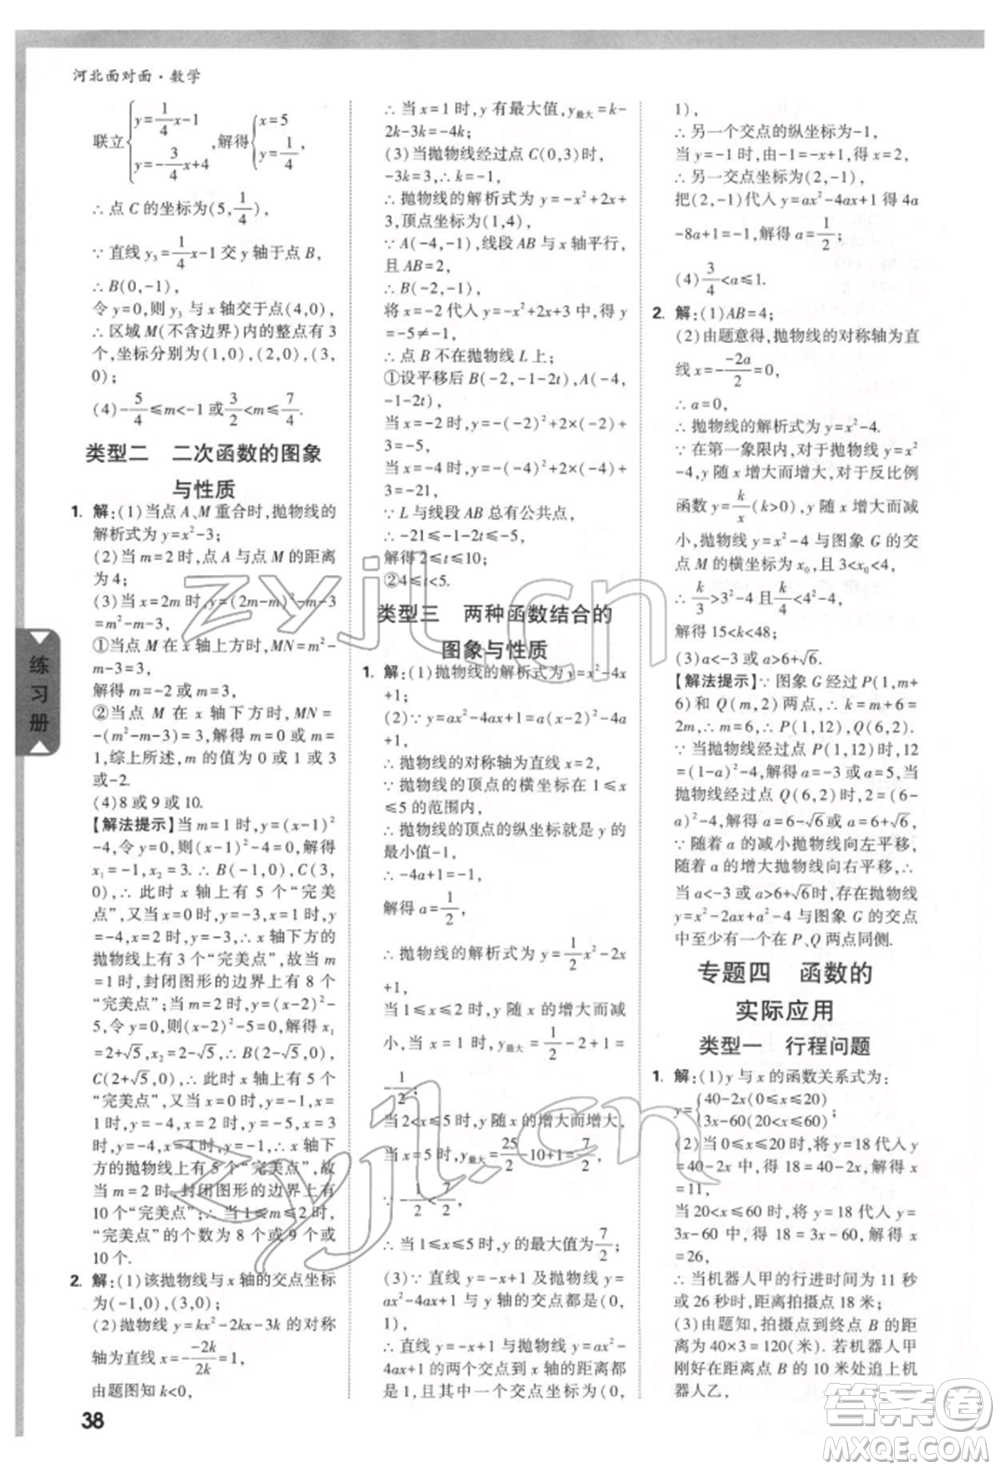 河北面对面·数学
联立{y=1/4x-1, y=-3/4x+4, 解得{x=5, y=1/4,
∴点 C 的坐标为(5,1/4),
∵直线 y₃=1/4x-1 交 y 轴于点 B,
∴B(0,-1),
令 y=0,则 y₃ 与 x 轴交于点(4,0),
∴区域 M(不含边界)内的整点有 3
个,坐标分别为(1,0),(2,0),(3,
0);
(4)-5/4≤m<-1 或3/2<m≤7/4.
类型二 二次函数的图象
与性质
1. 解:(1)当点 A、M 重合时,抛物线的
解析式为 y=x²-3;
(2)当 m=2 时,点 A 与点 M 的距离
为 4;
(3)当 x=2m 时,y=(2m-m)²-3
=m²-m-3,
①当点 M 在 x 轴上方时,有 m²-
m-3=3,
解得 m=-2 或 m=3;
②当点 M 在 x 轴下方时,有
-(m²-m-3)=3,解得 m=0 或 m=
1,综上所述,m 的值为 0 或 1 或 3
或-2.
(4)8 或 9 或 10.
【解法提示】当 m=1 时,y=(x-1)²
-4.令 y=0,则(x-1)²-4=0,解得
x₁=-1,x₂=3.∴B(-1,0),C(3,
0),∴此时 x 轴上有 5 个“完美
点”,又当 x=0 时,y=-3,当 x=1
时,y=-4,当 x=2 时,y=-3,∴此时
抛物线上有 5 个“完美点”,∴当
m=1 时,封闭图形的边界上有 8 个
“完美点”;当 m=2 时,y=(x-2)²
-5,令 y=0,则(x-2)²-5=0,解得 x₁
=2-√5,x₂=2+√5,∴B(2-√5,0),
C(2+√5,0),∴此时 x 轴上有 5 个
“完美点”,又当 x=0 时,y=-1,当
x=1 时,y=-4,当 x=2 时,y=-5,当 x=3
时,y=-4,x=4 时,y=-1,∴此时
抛物线上有 5 个“完美点”,
当 m=2 时,封闭图形的边界上有
10 个“完美点”,∴当 m 取不同值
时,“完美点”的个数为 8 或 9 或 10
个.
2. 解:(1)该抛物线与 x 轴的交点坐标
为(-1,0),(3,0);
(2)抛物线 y=kx²-2kx-3k 的对称
轴为直线 x=-(-2k)/(2k)=1,
由题图知 k<0,
∴当 x=1 时,y 有最大值,y最大=k-
2k-3k=-4k;
(3)当抛物线经过点 C(0,3)时,
-3k=3,解得 k=-1,
∴抛物线的解析式为 y=-x²+2x+
3,顶点坐标为(1,4),
∵A(-4,-1),线段 AB 与 x 轴平行,
∴B(-2,-1),
将 x=-2 代入 y=-x²+2x+3 中,
y=-5≠-1,
∴点 B 不在抛物线 L 上;
①设平移后 B(-2,-1-2t),A(-4,
-1-2t),
当 x=-2 时,y=-(-2)²+2×(-2)+
3=-5;
当 x=-4 时,y=-(-4)²+2×(-4)+
3=-21,
∵L 与线段 AB 总有公共点,
∴-21≤-1-2t≤-5,
解得 2≤t≤10;
②4≤t<5.
类型三 两种函数结合的
图象与性质
1. 解:(1)抛物线的解析式为 y=x²-4x+1;
(2)∵y=ax²-4ax+1=a(x-2)²-4a
+1,
∴抛物线的对称轴为直线 x=2,
∴抛物线的顶点的横坐标在 1≤x
≤5 的范围内,
∴抛物线的顶点的纵坐标就是 y 的
最小值-1,
∴-4a+1=-1,
解得 a=1/2,
∴抛物线的解析式为 y=1/2x²-2x+1,
当 1≤x≤2 时,y 随 x 的增大而减
小,∴当 x=1 时,y最大=1/2-2+1=
-1/2,
当 2<x≤5 时,y 随 x 的增大而增大,
当 x=5 时,y最大=25/2-10+1=7/2,
∵-1/2<7/2,
∴当 1≤x≤5 时,y 的最大值为7/2;
(3)∵直线 y=-x+1 及抛物线 y=
ax²-4ax+1 都经过点(0,1),
∴直线 y=-x+1 与抛物线 y=ax²-4ax
+1 的两个交点中有一个交点是(0,
1),
∴另一个交点的纵坐标为-1,
当 y=-1 时,-x+1=-1,解得 x=2,
∴另一个交点为(2,-1),
把(2,-1)代入 y=ax²-4ax+1 得 4a
-8a+1=-1,解得 a=1/2;
(4)3/4<a≤1.
2. 解:(1)AB=4;
(2)由题意得,抛物线的对称轴为直
线 x=-(-2a)/2=0,
∴a=0,
∴抛物线的解析式为 y=x²-4.
∵在第一象限内,对于抛物线 y=x²
-4,y 随 x 增大而增大,对于反比例
函数 y=k/x(k>0),y 随 x 增大而减
小,∴抛物线 y=x²-4 与图象 G 的交
点 M 的横坐标为 x₀,且 3<x₀<4,
∴k/3>3²-4,k/4<4²-4,
解得 15<k<48;
(3)a<1-√5 或 a>6+√6.
【解法提示】∵图象 G 过点 P(1,m+
6)和 Q(m,2)两点,∴k=m+6=
2m,∴m=6,∴P(1,12),Q(6,2).
∵当抛物线经过点 P(1,12)时,12
=(1-a)²-4,∴a=5 或 a=1-√5;当
抛物线经过点 Q(6,2)时,2=(6-
a)²-4,∴a=6-√6或 a=6+√6.
∵随着 a 的减小抛物线向左平移,
随着 a 的增大抛物线向右平移,∴
当 a<1-√5或 a>6+√6时,存在抛物线
y=x²-2ax+a²-4 与图象 G 的交点
中至少有一个在 P、Q 两点同侧.
专题四 函数的
实际应用
类型一 行程问题
1. 解:(1)y 与 x 的函数关系式为:
y={40-2x(0≤x≤20), 3x-60(20<x≤60);
(2)当 0≤x≤20 时,18=40-2x,解
得 x=11,
当 20<x≤60 时,y=3x-60,则 18=
3x-60,解得 x=26,
∴当机器人甲的行进时间为 11 秒
或 26 秒时,距离拍摄点 18 米;
(3)由题知,当追上时,总路程为
40×3=120(米).若机器人甲
刚好在距离点 B 10 米处追上机
器人乙,
练习册
38
zyjl.cn
zyjl.cn
答案圈
MXQE.COM